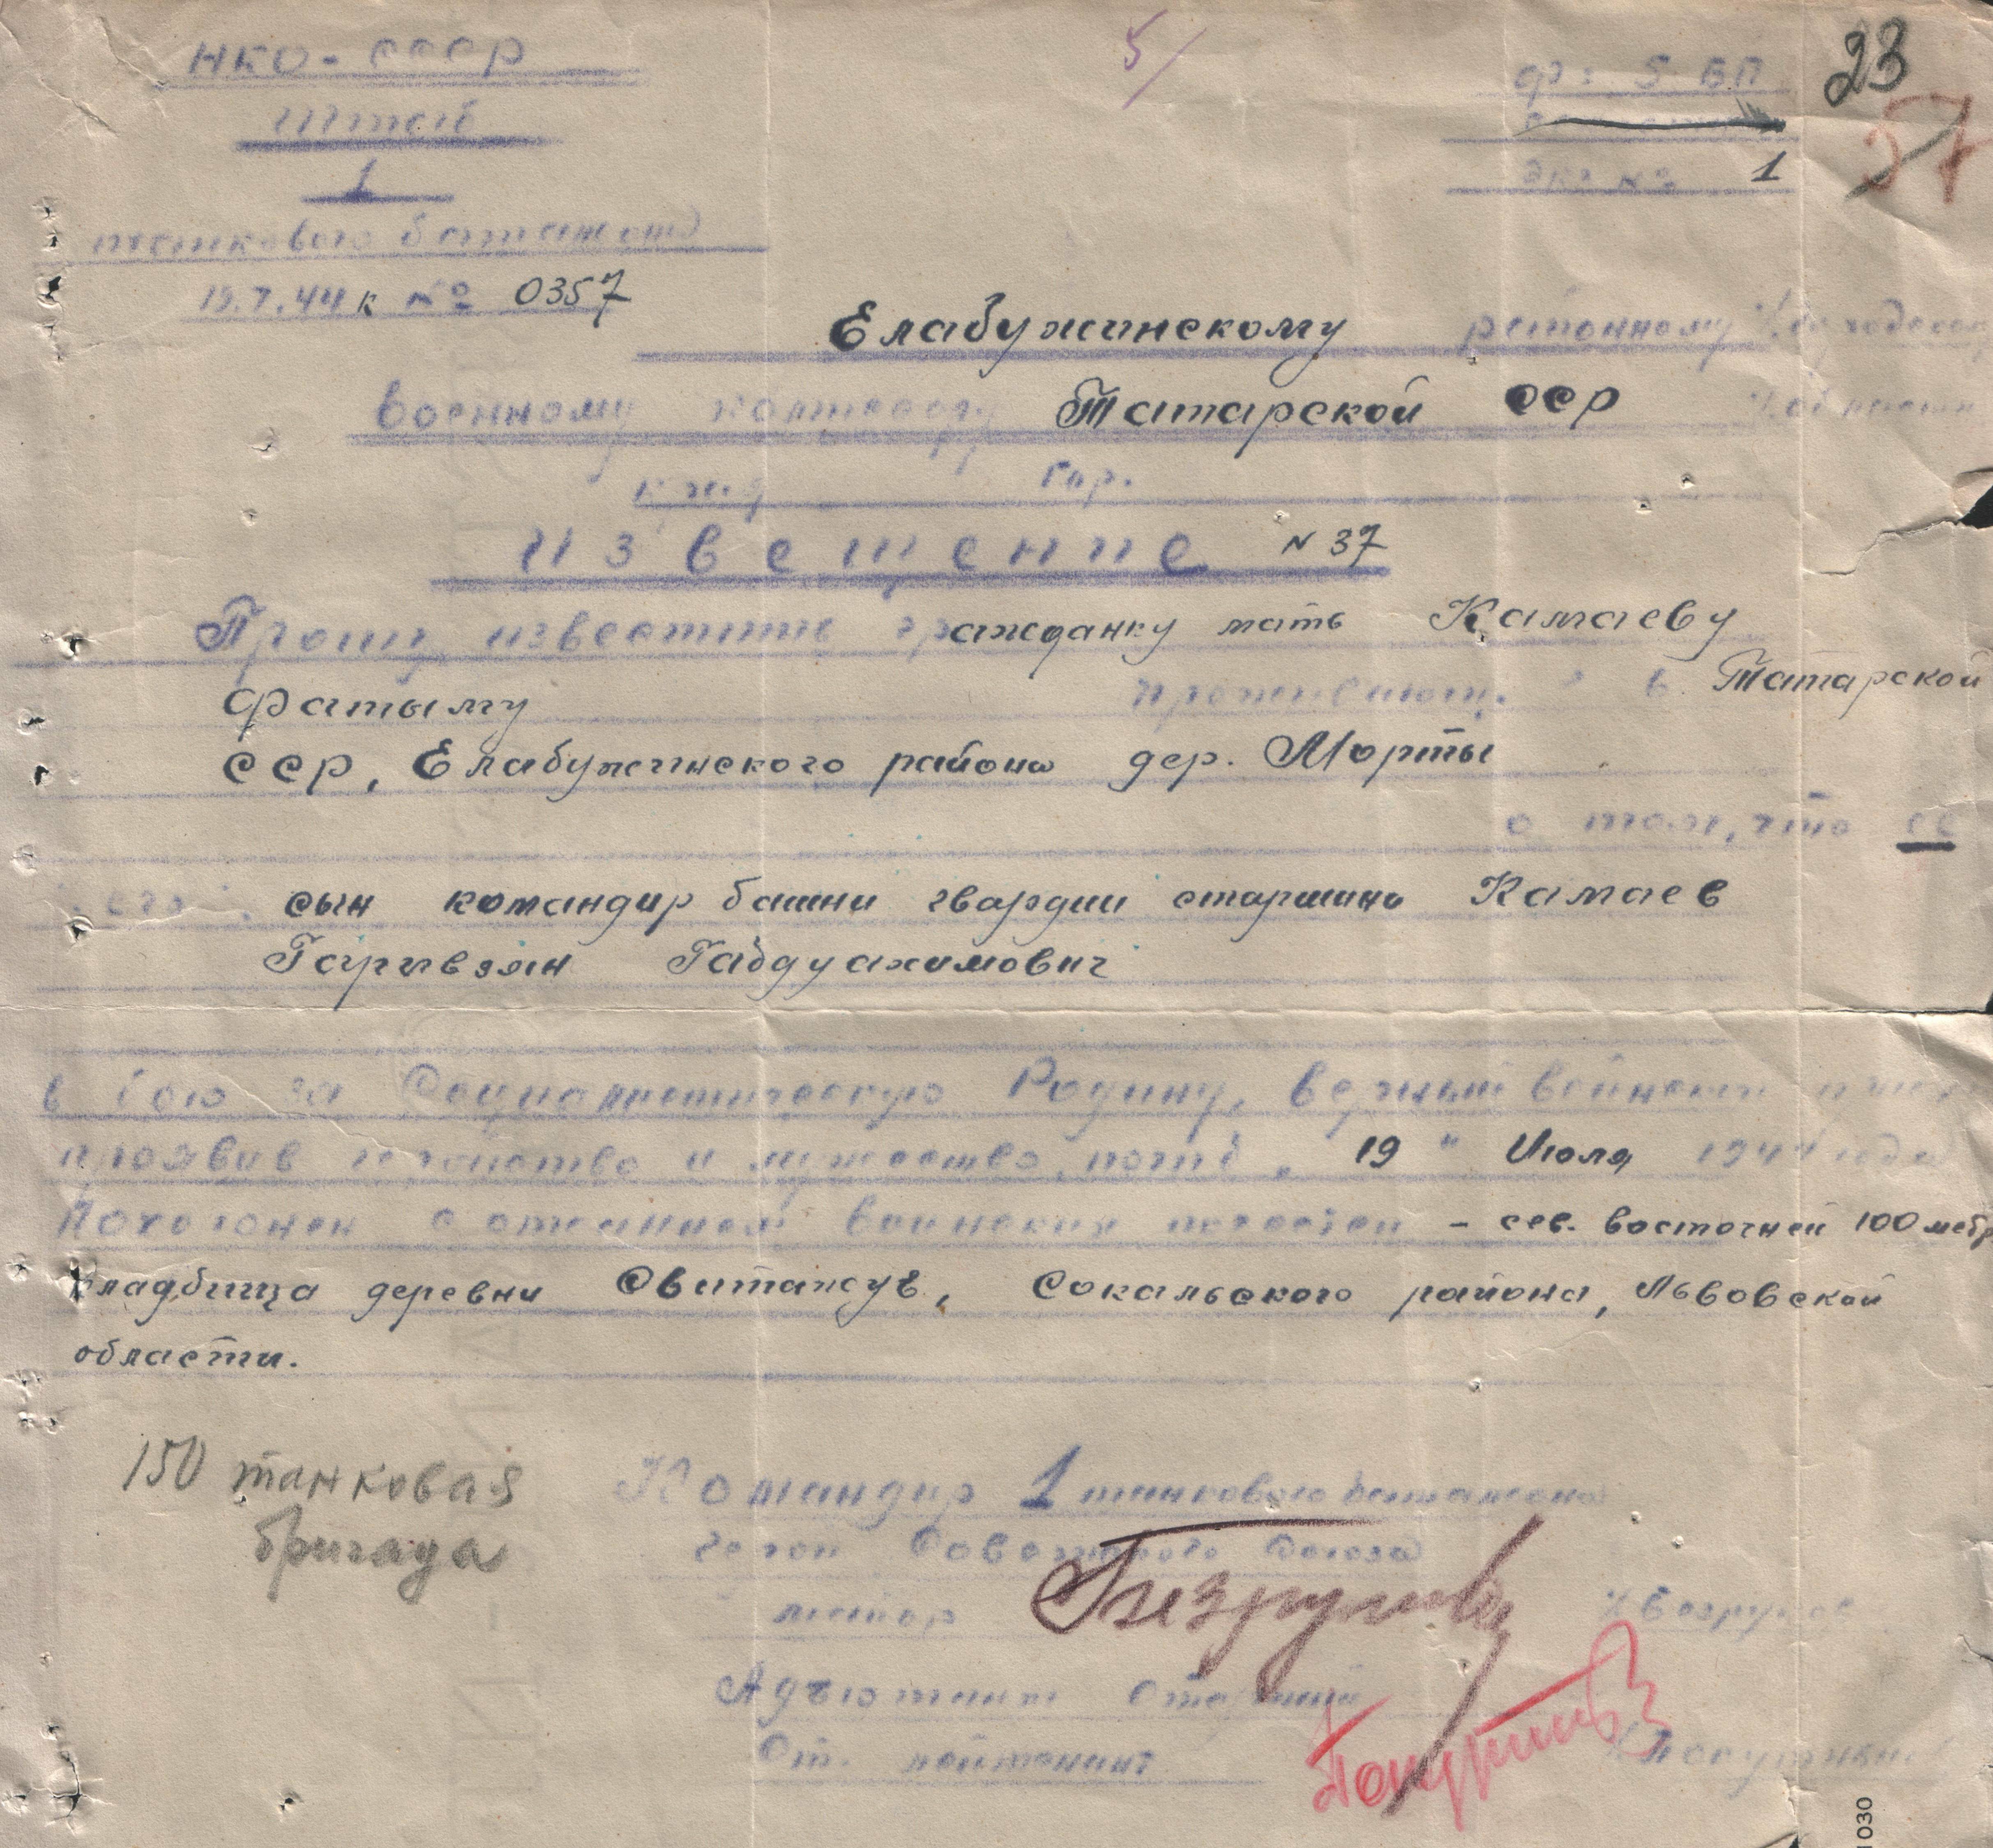 НКО - СССР
Штаб
1
танкового батальона
19.7.44 к № 0357
5/
ф: 5 ВП
экз № 1
23
37
Елабужинскому районному
военному Татарской ССР
гор.
Извещение N 37
Прошу известить гражданку мать Камаеву
Фатыму проживающ. в Татарской
ССР, Елабужинского района дер. Морты
о том, что ее
его сын командир башни гвардии старшина Камаев
Гаривзян Габдуахимович
в бою за Социалистическую Родину, верный воинской
проявив геройство и мужество, погиб „ 19 " Июля 1944 года
Похоронен с отданием воинских почестей - сев. восточней 100 метр
кладбища деревни Свитажув, Сокальского района, Львовской
области.
150 танковая
бригада
Командир 1 танкового батальона
Герой Советского Союза
майор /Безруков
Адъютант Старший
Ст. лейтенант
1030